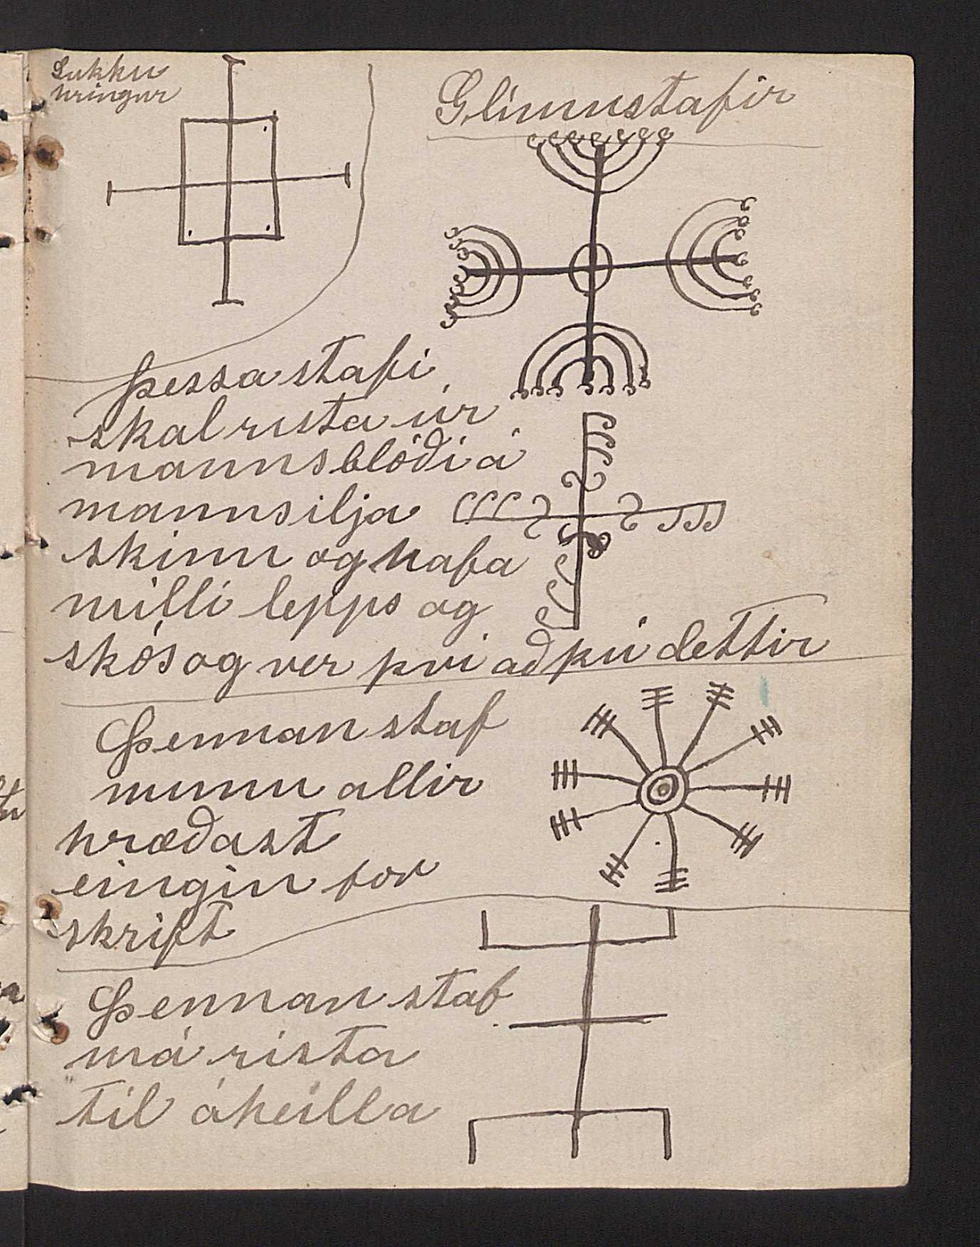 Lukku
hringur
Glímustafir
Þessa stafi
skal rista úr
mannsblóði á
mannsilja
skinn og hafa
milli lepps og
skós og ver því að þú dettir
Þennan staf
munu allir
hræðast
eingin for
skrift
Þennan staf
má rista
til áheilla